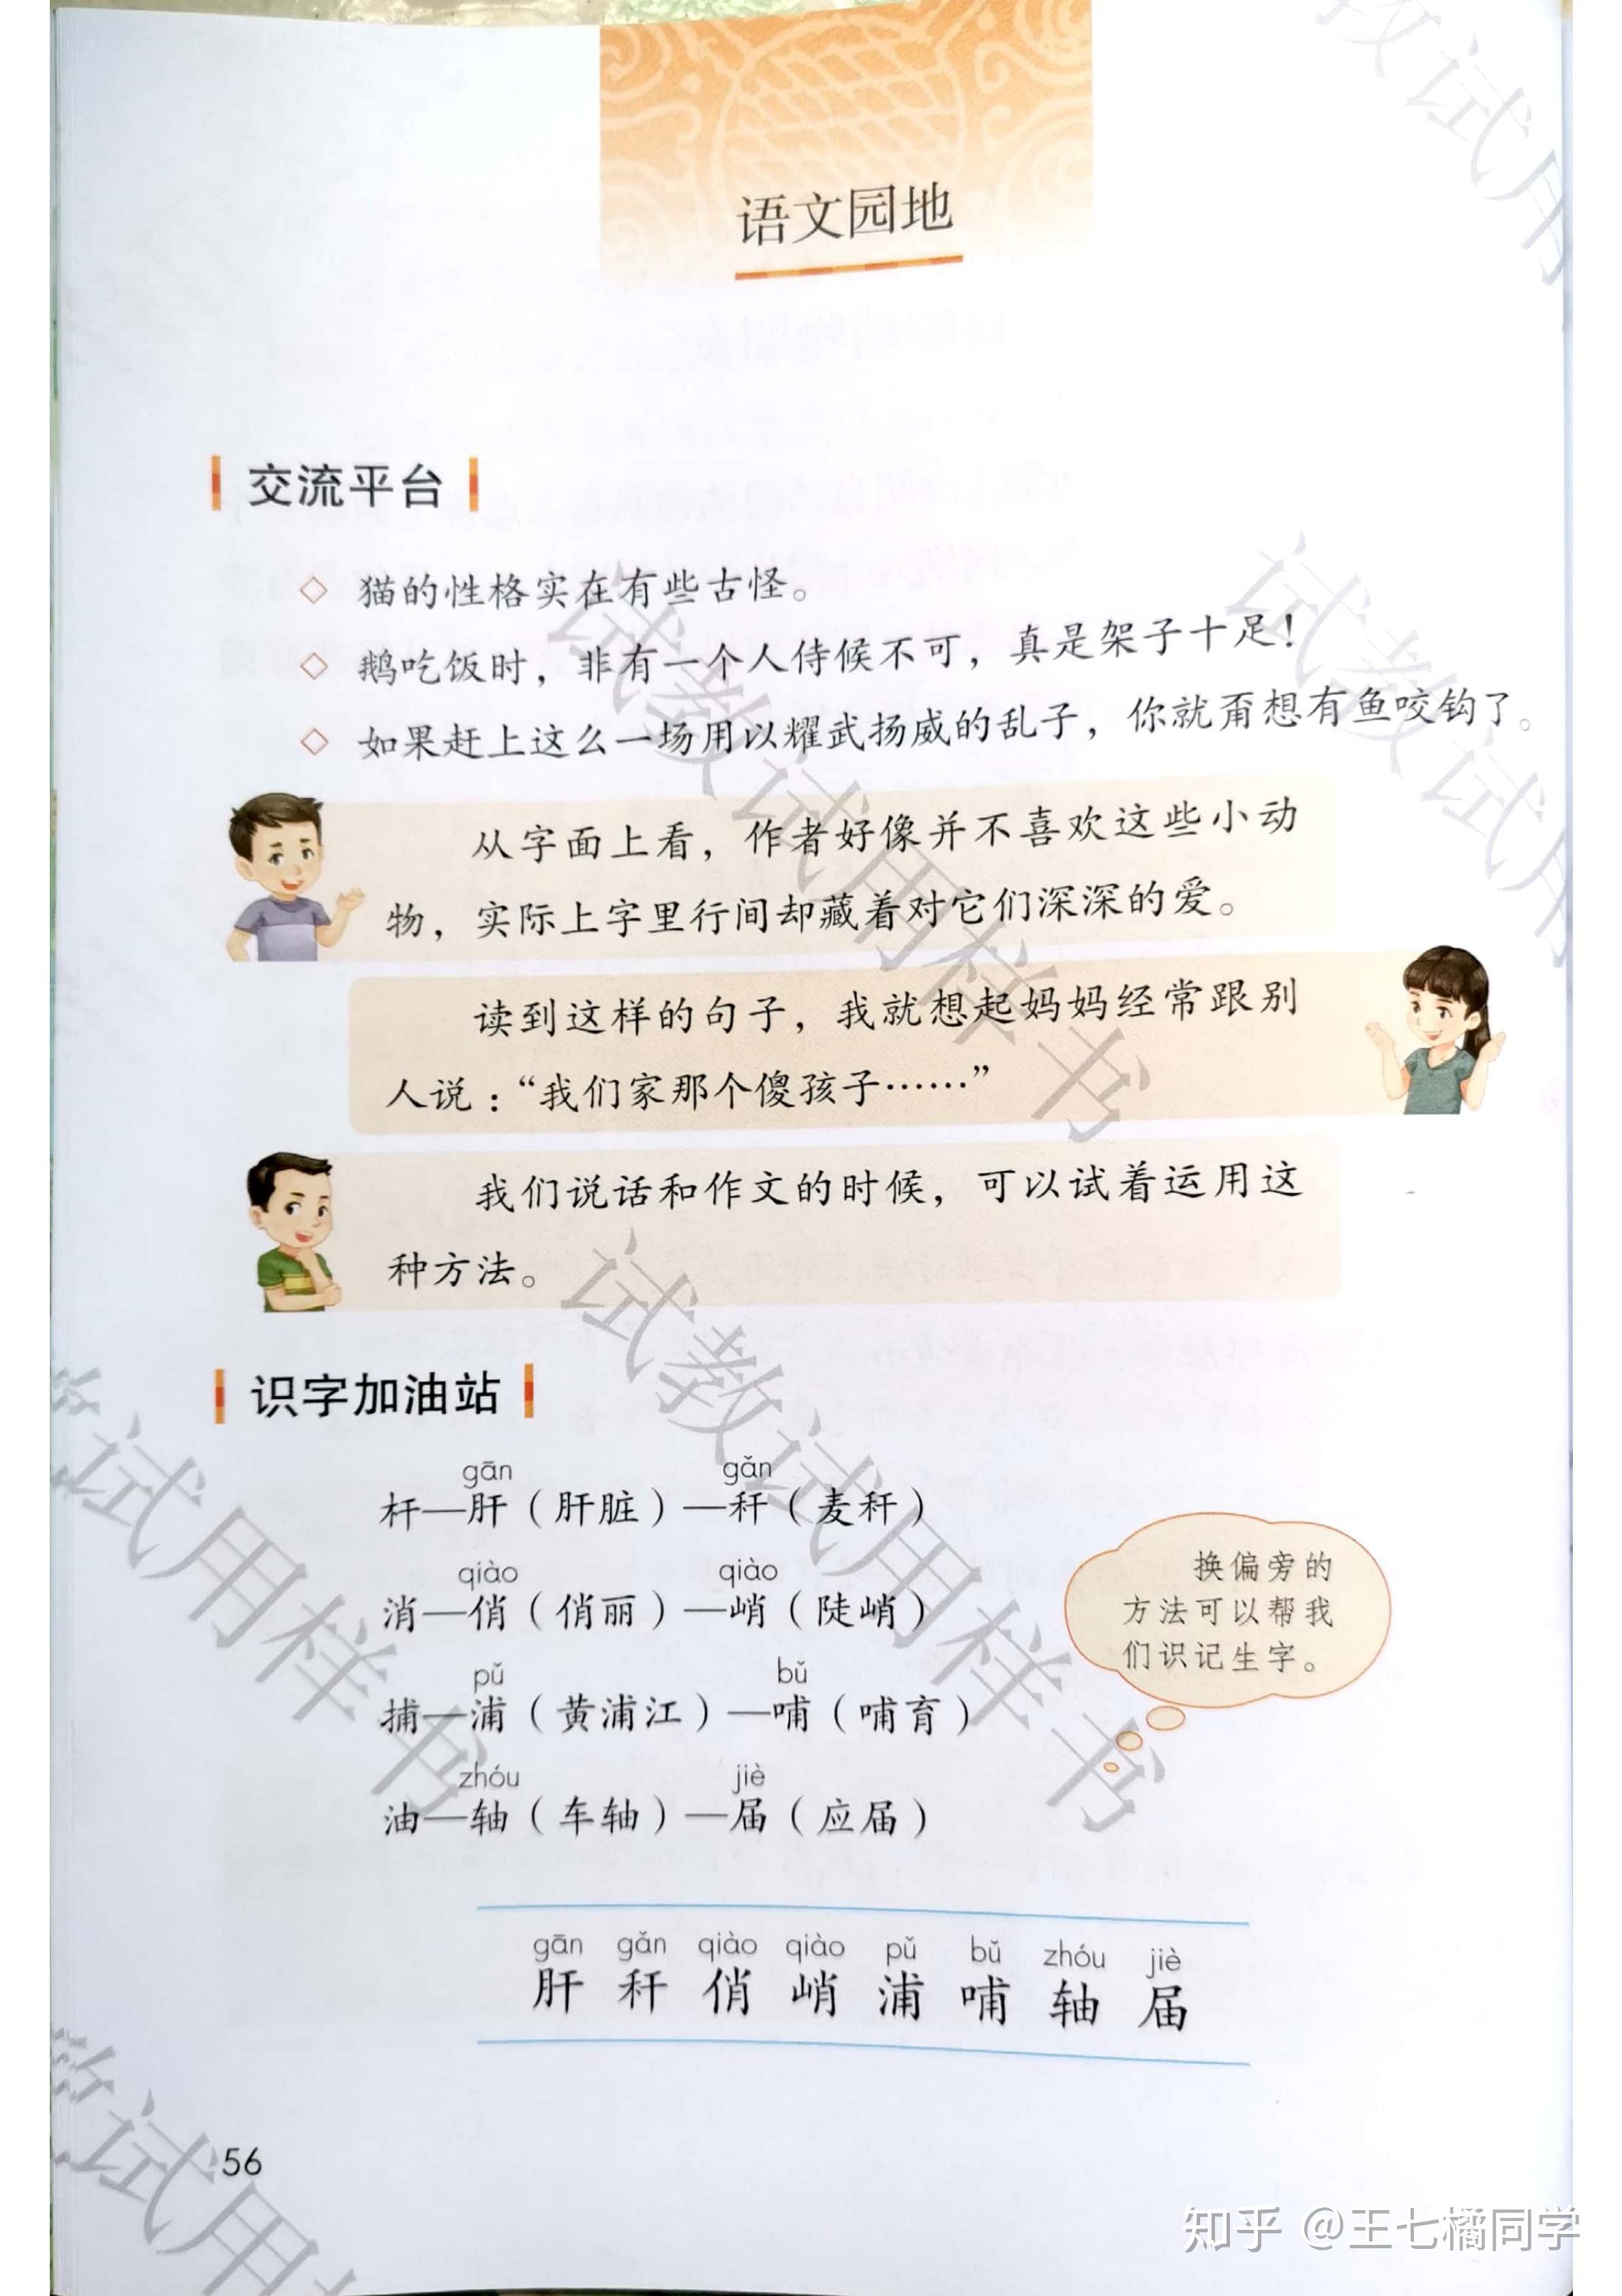 语文园地
交流平台
◇ 猫的性格实在有些古怪。
◇ 鹅吃饭时，非有一个人侍候不可，真是架子十足！
◇ 如果赶上这么一场用以耀武扬威的乱子，你就甭想有鱼咬钩了。
从字面上看，作者好像并不喜欢这些小动
物，实际上字里行间却藏着对它们深深的爱。
读到这样的句子，我就想起妈妈经常跟别
人说：“我们家那个傻孩子……”
我们说话和作文的时候，可以试着运用这
种方法。
识字加油站
gān gǎn
杆—肝（肝脏）—秆（麦秆）
qiào qiào
消—俏（俏丽）—峭（陡峭）
pǔ bǔ
捕—浦（黄浦江）—哺（哺育）
zhóu jiè
油—轴（车轴）—届（应届）
换偏旁的
方法可以帮我
们识记生字。
gān gǎn qiào qiào pǔ bǔ zhóu jiè
肝 秆 俏 峭 浦 哺 轴 届
56
试教试用样书
试教试用样书
试教试用
教试用
试用样书
教试用样
知乎 @王七橘同学